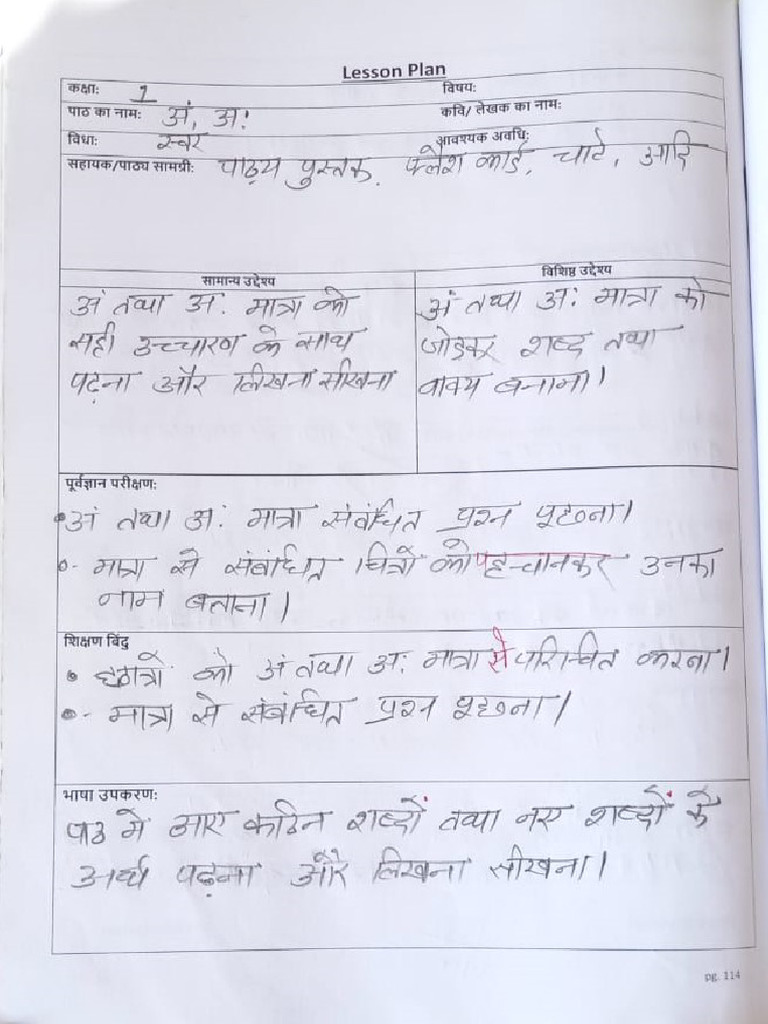 Lesson Plan
कक्षा: 1 विषय:
पाठ का नाम: अं, अ: कवि/ लेखक का नाम:
विधा: स्वर आवश्यक अवधि:
सहायक/पाठ्य सामग्री: पाठ्य पुस्तक, फ्लैश कार्ड, चार्ट, आदि
सामान्य उद्देश्य
अं तथा अ: मात्रा को
सही उच्चारण के साथ
पढ़ना और लिखना सीखना
विशिष्ठ उद्देश्य
अं तथा अ: मात्रा को
जोड़कर शब्द तथा
वाक्य बनाना।
पूर्वज्ञान परीक्षण:
• अं तथा अ: मात्रा संबंधित प्रश्न पूछना।
• - मात्रा से संबंधित चित्रों को पहचानकर उनका
नाम बताना।
शिक्षण बिंदु
• छात्रों को अं तथा अ: मात्रा से परिचित करना।
• - मात्रा से संबंधित प्रश्न पूछना।
भाषा उपकरण:
पाठ में आए कठिन शब्दों तथा नए शब्दों के
अर्थ पढ़ना और लिखना सीखना।
pg. 114